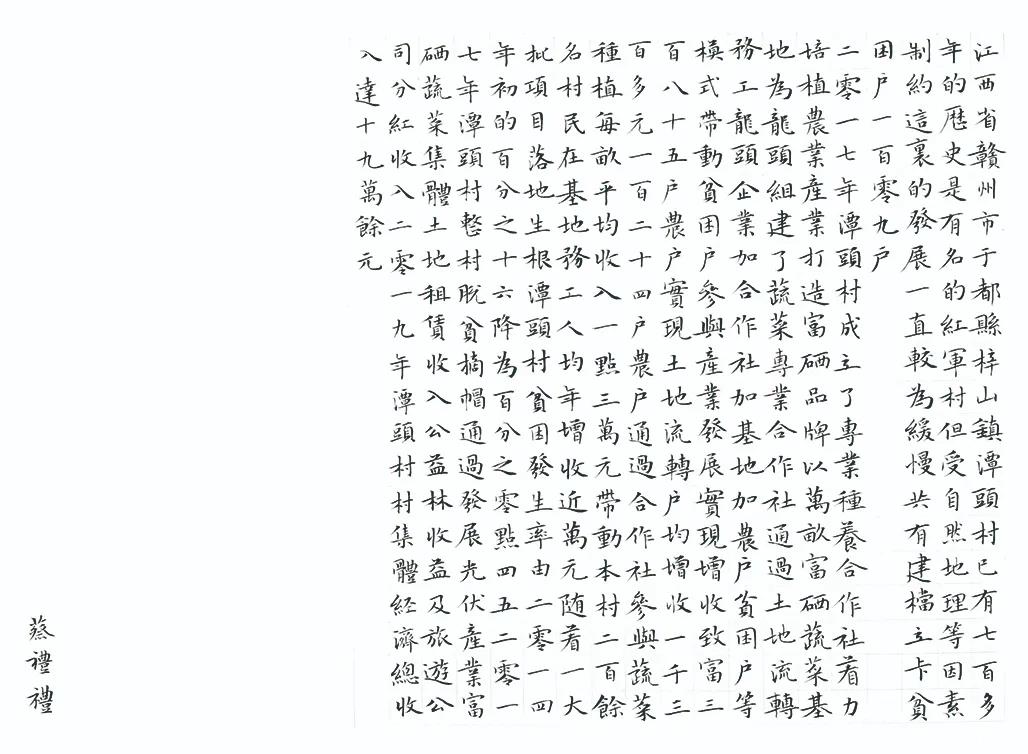 江西省贛州市于都縣梓山鎮潭頭村已有七百多
年的歷史是有名的紅軍村但受自然地理等因素
制約這裏的發展一直較為緩慢共有建檔立卡貧
困户一百零九户
二零一七年潭頭村成立了專業種養合作社着力
培植農業産業打造富硒品牌以萬畝富硒蔬菜基
地為龍頭組建了蔬菜專業合作社通過土地流轉
務工龍頭企業加合作社加基地加農户貧困户等
模式帶動貧困户參與産業發展實現增收致富三
百八十五户農户實現土地流轉户均增收一千三
百多元一百二十四户農户通過合作社參與蔬菜
種植每畝平均收入一點三萬元帶動本村二百餘
名村民在基地務工人均年增收近萬元随着一大
批項目落地生根潭頭村貧困發生率由二零一四
年初的百分之十六降為百分之零點四五二零一
七年潭頭村整村脱貧摘帽通過發展光伏産業富
硒蔬菜集體土地租賃收入公益林收益及旅遊公
司分紅收入二零一九年潭頭村村集體經濟總收
入達十九萬餘元
蔡禮禮